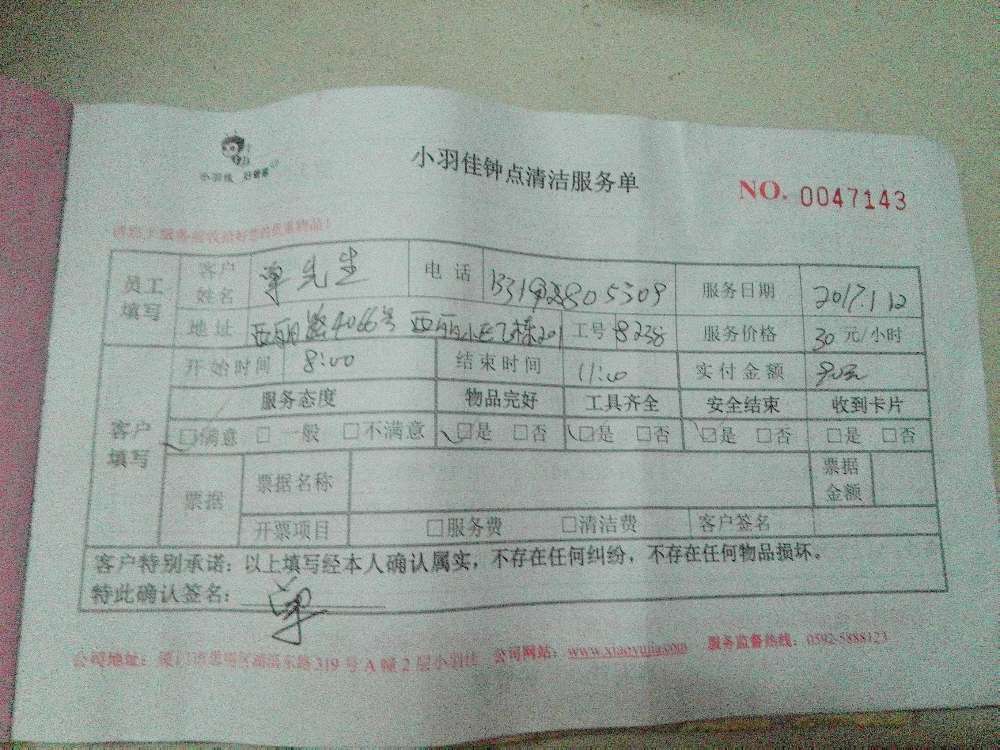 小羽佳 好管家
小羽佳钟点清洁服务单
NO. 0047143
员工填写 客户姓名 单先生 电话 服务日期 2017.1.12
地址 西丽路4066号 西丽小区 栋201 工号 8238 服务价格 30 元/小时
开始时间 8:00 结束时间 11:00 实付金额 90元
客户填写 服务态度 物品完好 工具齐全 安全结束 收到卡片
□满意 □一般 □不满意 □是 □否 □是 □否 □是 □否 □是 □否
票据 票据名称 票据金额
开票项目 □服务费 □清洁费 客户签名
客户特别承诺：以上填写经本人确认属实，不存在任何纠纷，不存在任何物品损坏。
特此确认签名： 单
公司地址：厦门市思明区湖滨东路319号A幢2层小羽佳 公司网站：www.xiaoyujia.com 服务监督热线：0592-5888123